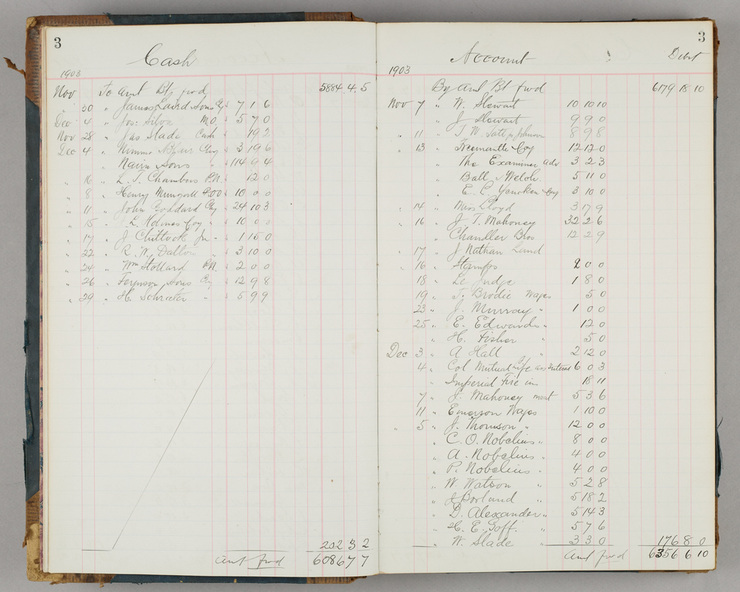 3
Cash
1903
Nov " To Amt Bt fwd 5884 4 5
" 30 " James Laird & Sons Cq 7 1 6
Dec 4 " Jos. Silva M.O. 5 7 0
Nov 28 " Jas Slade Cash 19 2
Dec 4 " Cq 3 19 6
" Nairn Sons " 114 9 4
" 16 " L. J. Chambers P.N. 12 0
" 8 " Henry 10 0 0
" 11 " John Goddard Cq 24 10 3
" 15 " E. Holmes Coy " 10 0 0
" 17 " J. Chittock Jn 1 15 0
" 22 " R. N. Dallow 3 10 0
" 24 " Wm Hollard P.N. 2 0 0
" 26 " Ferguson Sons Cq 12 9 8
" 29 " H. Schrater " 5 9 9
202 3 2
Amt fwd 6086 7 7
3
Account
Debt
1903
By Amt Bt fwd 6179 18 10
Nov 7 " W. Stewart 10 10 10
" J. Stewart 9 9 0
" 11 " J. W. 8 9 8
" 13 " Coy 12 12 0
" The Examiner adv 3 2 3
" Ball & Welch 5 11 0
" E. C. Yencken Coy 3 10 0
" 14 " Miss Lloyd 3 7 9
" 16 " J. T. Mahoney 32 2 6
" Chandler Bros 12 2 9
" 17 " J. Nathan Lund
" 16 " Stamps 2 0 0
18 " Le Judge 1 8 0
19 " T. Brodie Wages 5 0
23 " J. Murray " 1 0 0
25 " E. Edwards " 12 0
" H. Fisher " 5 0
Dec 3 " A Hall " 2 12 0
4 " Col Mutual Life 6 0 3
" Imperial Fire ins 18 11
7 " J. Mahoney meat 5 3 6
11 " Emerson Wages 1 10 0
" 5 " J. Thomson " 12 0 0
" C. O. Nobelius " 8 0 0
" A. Nobelius " 4 0 0
" P. Nobelius " 4 0 0
" W Watson " 5 2 8
" J Borland " 5 18 2
" D. Alexander " 5 14 3
" H. E. Goff " 5 7 6
" W. Slade " 3 3 0 176 8 0
Amt fwd 6356 6 10